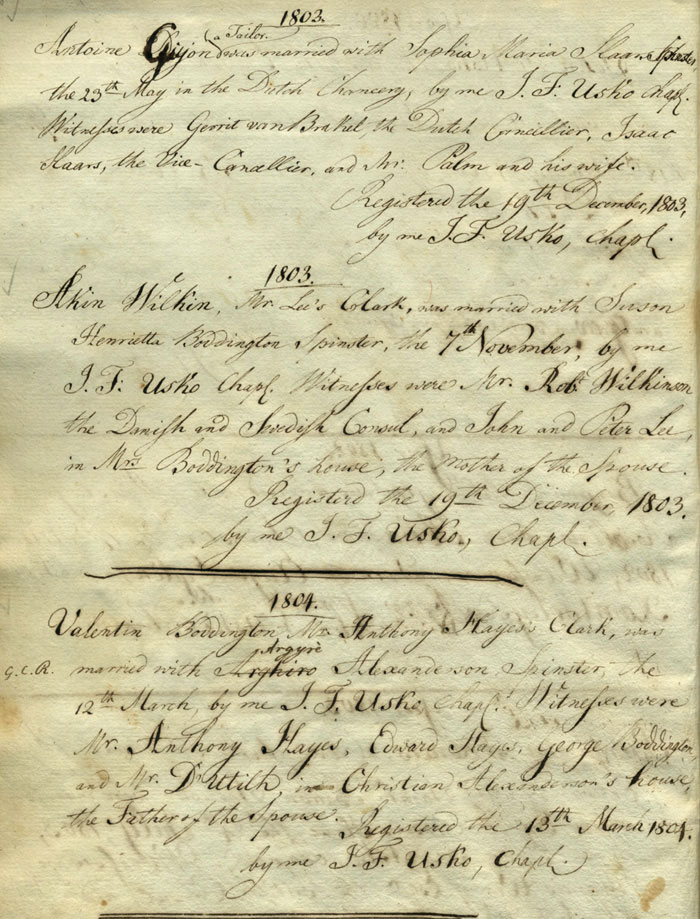 1803.
a Tailor.
Antoine Guyon was married with Sophia Maria Slaars Spinster,
the 23th May in the Dutch Chancery, by me J. F. Usko Chapl.
Witnesses were Gerrit van Brakel the Dutch Cancillier, Isaac
Slaars, the Vice-Cancellier, and Mr. Palm and his wife.
Registered the 19th December, 1803,
by me J. F. Usko, Chapl.
1803.
Akin Wilkin, Mr. Lee's Clark, was married with Suson
Henrietta Boddington Spinster, the 7th November, by me
J. F. Usko Chapl. Witnesses were Mr. Robt. Wilkinson
the Danish and Swedish Consul, and John and Peter Lee,
in Mrs Boddington's house, the Mother of the Spouse.
Registerd the 19th December, 1803.
by me J. F. Usko, Chapl.
1804.
Valentin Boddington, Mr. Anthony Hayes's Clark, was
Argyrè
G.C.R. married with Arghiro Alexanderson, Spinster, the
12th March, by me J. F. Usko, Chapl. Witnesses were
Mr. Anthony Hayes, Edward Hayes, George Boddington,
and Mr. in Christian Alexanderson's house,
the Father of the Spouse.
Registered the 13th March 1804.
by me J. F. Usko, Chapl.